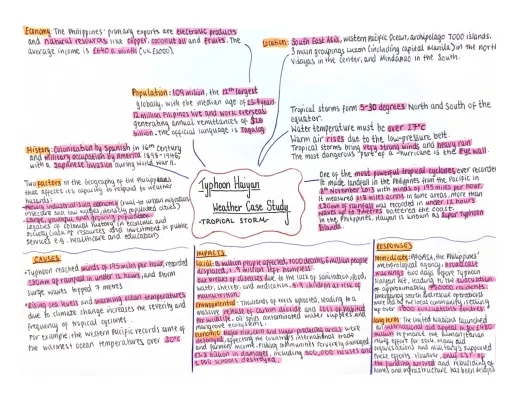 Economy: The Philippines' primary exports are electronic products
and natural resources like copper, coconut oil and fruits. The
average income is £640 a month (UK £3000).
Location: South East Asia, western Pacific Ocean, archipelago 7000 islands.
3 main groupings Luzon (including capital Manila) in the north
Visayas in the center, and Mindanao in the South.
Population: 109 million, the 12th largest
globally, with the median age of
12 million Filipinos live and work overseas
generating annual remittances of
billion. The official language is Tagalog.
Tropical storms form 5-30 degrees North and South of the
equator.
Water temperature must be over 27°C
Warm air rises due to the low-pressure belt.
Tropical storms bring very strong winds and heavy rain
The most dangerous "part" of a hurricane is the Eye wall.
History: Colonisation by Spain in 16th Century
and military occupation by America 1898-1946
with a Japanese invasion during World War II.
Two factors in the geography of the Philippines
that affects its capacity to respond to weather
hazards:
Typhoon Haiyan
Weather Case Study
-TROPICAL STORM-
One of the most powerful tropical cyclones ever recorded
it made landfall in the Philippines from the Pacific in
8th November 2013 with winds of 195 miles per hour.
It measured 315 miles across in some areas, more than
of rainfall was recorded in under 12 hours
waves up to 7 metres battered the coast
in the Philippines, Haiyan is known as Super Typhoon
large, younger, and growing populations
legacies of colonial history in economic and
society (lack of resources and investment in public
services e.g. healthcare and education)
CAUSES
Typhoon reached winds of 195 miles per hour, recorded
of rainfall in under 12 hours, and storm
surge waves topped 7 metres
Rising sea levels and warming ocean temperatures
due to climate change increases the severity and
frequency of tropical cyclones.
For example, the western Pacific records some of
the warmest ocean temperatures, over
IMPACTS
Social: million people affected, 7000 deaths, 6 million people
displaced, 1.9 million left homeless.
outbreaks of diseases due to the lack of sanitation, food,
water, shelter, and medication. children at risk of
malnutrition.
Environmental: Thousands of trees uprooted, leading to a
massive release of carbon dioxide and loss of habitat
for wildlife. Oil spills contaminated water supplies and
mangrove ecosystems.
Economic: Major rice, and sugar-producing areas were
destroyed, affecting the country's international trade
and farmers' income. Fishing communities severely damaged.
in damages, including houses and
schools destroyed.
RESPONSES
Immediate: PAGASA, the Philippines'
meteorological agency, broadcasted
warnings two days before Typhoon
Haiyan hit, leading to the evacuation
of approximately residents.
over evacuation centres
Long term: The United Nations launched
an international aid appeal in for
to finance the humanitarian
relief effort for many aid
organisations and military supported
these efforts. However, only of
the funding arrived and rebuilding of
homes and infrastructure has been delayed